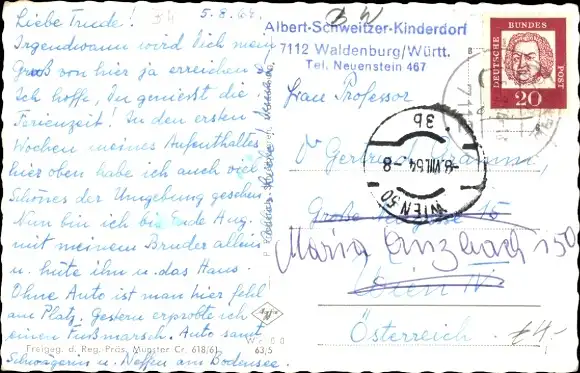 Liebe Trude! 5.8.64
Irgendwann wird Dich mein
Gruß von hier ja erreichen.
Ich hoffe, Du genießt die
Ferienzeit! In den ersten
Wochen meines Aufenthaltes
hier oben habe ich auch viel
Schönes der Umgebung gesehen.
Nun bin ich bis Ende Aug.
mit meinem Bruder allein
u. hüte ihn u. das Haus.
Ohne Auto ist man hier fehl
am Platz. Gestern erprobte ich
einen Fußmarsch. Auto samt
Schwägerin u. Neffen am Bodensee.
Freigeg. d. Reg. Präs. Münster Cr. 618/61
63/5
Agfa
Albert-Schweitzer-Kinderdorf
7112 Waldenburg/Württ.
Tel. Neuenstein 467
DEUTSCHE BUNDESPOST
20
7112
3b
-6.VIII.64-8
WIEN 50
Frau Professor
Dr Gertrud
Große 15
Maria Enzbach 150
Wien IV
Österreich